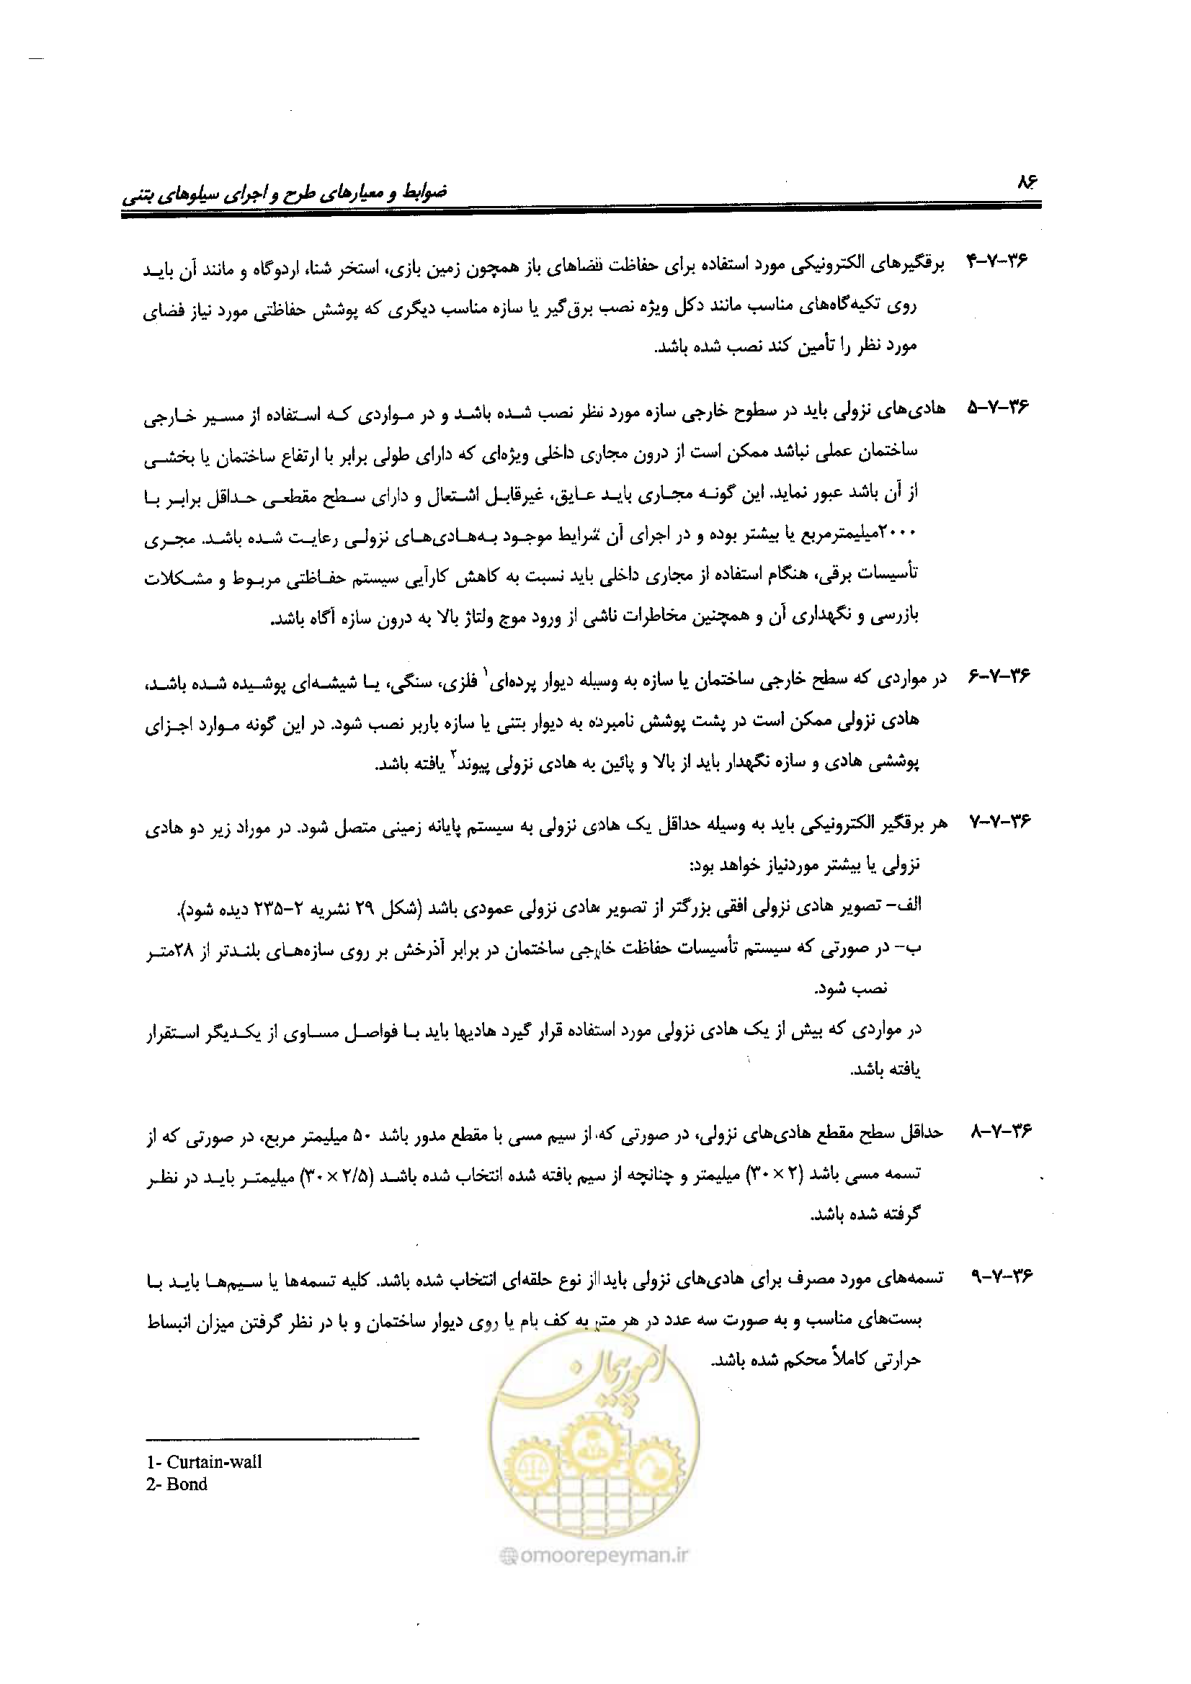 ۸۶
ضوابط و معیارهای طرح و اجرای سیلوهای بتنی
۳۶-۷-۴ برقگیرهای الکترونیکی مورد استفاده برای حفاظت فضاهای باز همچون زمین بازی، استخر شنا، اردوگاه و مانند آن باید
روی تکیه‌گاه‌های مناسب مانند دکل ویژه نصب برق‌گیر یا سازه مناسب دیگری که پوشش حفاظتی مورد نیاز فضای
مورد نظر را تأمین کند نصب شده باشد.
۳۶-۷-۵ هادی‌های نزولی باید در سطوح خارجی سازه مورد نظر نصب شده باشد و در مواردی که استفاده از مسیر خارجی
ساختمان عملی نباشد ممکن است از درون مجاری داخلی ویژه‌ای که دارای طولی برابر با ارتفاع ساختمان یا بخشی
از آن باشد عبور نماید. این گونه مجاری باید عایق، غیرقابل اشتعال و دارای سطح مقطعی حداقل برابر با
۲۰۰۰میلیمترمربع یا بیشتر بوده و در اجرای آن شرایط موجود به‌هادی‌های نزولی رعایت شده باشد. مجری
تأسیسات برقی، هنگام استفاده از مجاری داخلی باید نسبت به کاهش کارآیی سیستم حفاظتی مربوط و مشکلات
بازرسی و نگهداری آن و همچنین مخاطرات ناشی از ورود موج ولتاژ بالا به درون سازه آگاه باشد.
۳۶-۷-۶ در مواردی که سطح خارجی ساختمان یا سازه به وسیله دیوار پرده‌ای۱ فلزی، سنگی، یا شیشه‌ای پوشیده شده باشد،
هادی نزولی ممکن است در پشت پوشش نامبرده به دیوار بتنی یا سازه باربر نصب شود. در این گونه موارد اجزای
پوششی هادی و سازه نگهدار باید از بالا و پائین به هادی نزولی پیوند۲ یافته باشد.
۳۶-۷-۷ هر برقگیر الکترونیکی باید به وسیله حداقل یک هادی نزولی به سیستم پایانه زمینی متصل شود. در موراد زیر دو هادی
نزولی یا بیشتر موردنیاز خواهد بود:
الف- تصویر هادی نزولی افقی بزرگتر از تصویر هادی نزولی عمودی باشد (شکل ۲۹ نشریه ۲-۲۳۵ دیده شود).
ب- در صورتی که سیستم تأسیسات حفاظت خارجی ساختمان در برابر آذرخش بر روی سازه‌های بلندتر از ۲۸متر
نصب شود.
در مواردی که بیش از یک هادی نزولی مورد استفاده قرار گیرد هادیها باید با فواصل مساوی از یکدیگر استقرار
یافته باشد.
۳۶-۷-۸ حداقل سطح مقطع هادی‌های نزولی، در صورتی که از سیم مسی با مقطع مدور باشد ۵۰ میلیمتر مربع، در صورتی که از
تسمه مسی باشد (۲×۳۰) میلیمتر و چنانچه از سیم بافته شده انتخاب شده باشد (۲/۵×۳۰) میلیمتر باید در نظر
گرفته شده باشد.
۳۶-۷-۹ تسمه‌های مورد مصرف برای هادی‌های نزولی باید از نوع حلقه‌ای انتخاب شده باشد. کلیه تسمه‌ها یا سیم‌ها باید با
بست‌های مناسب و به صورت سه عدد در هر متر به کف بام یا روی دیوار ساختمان و با در نظر گرفتن میزان انبساط
حرارتی کاملاً محکم شده باشد.
1- Curtain-wall
2- Bond
امور پیمان
@omoorepeyman.ir